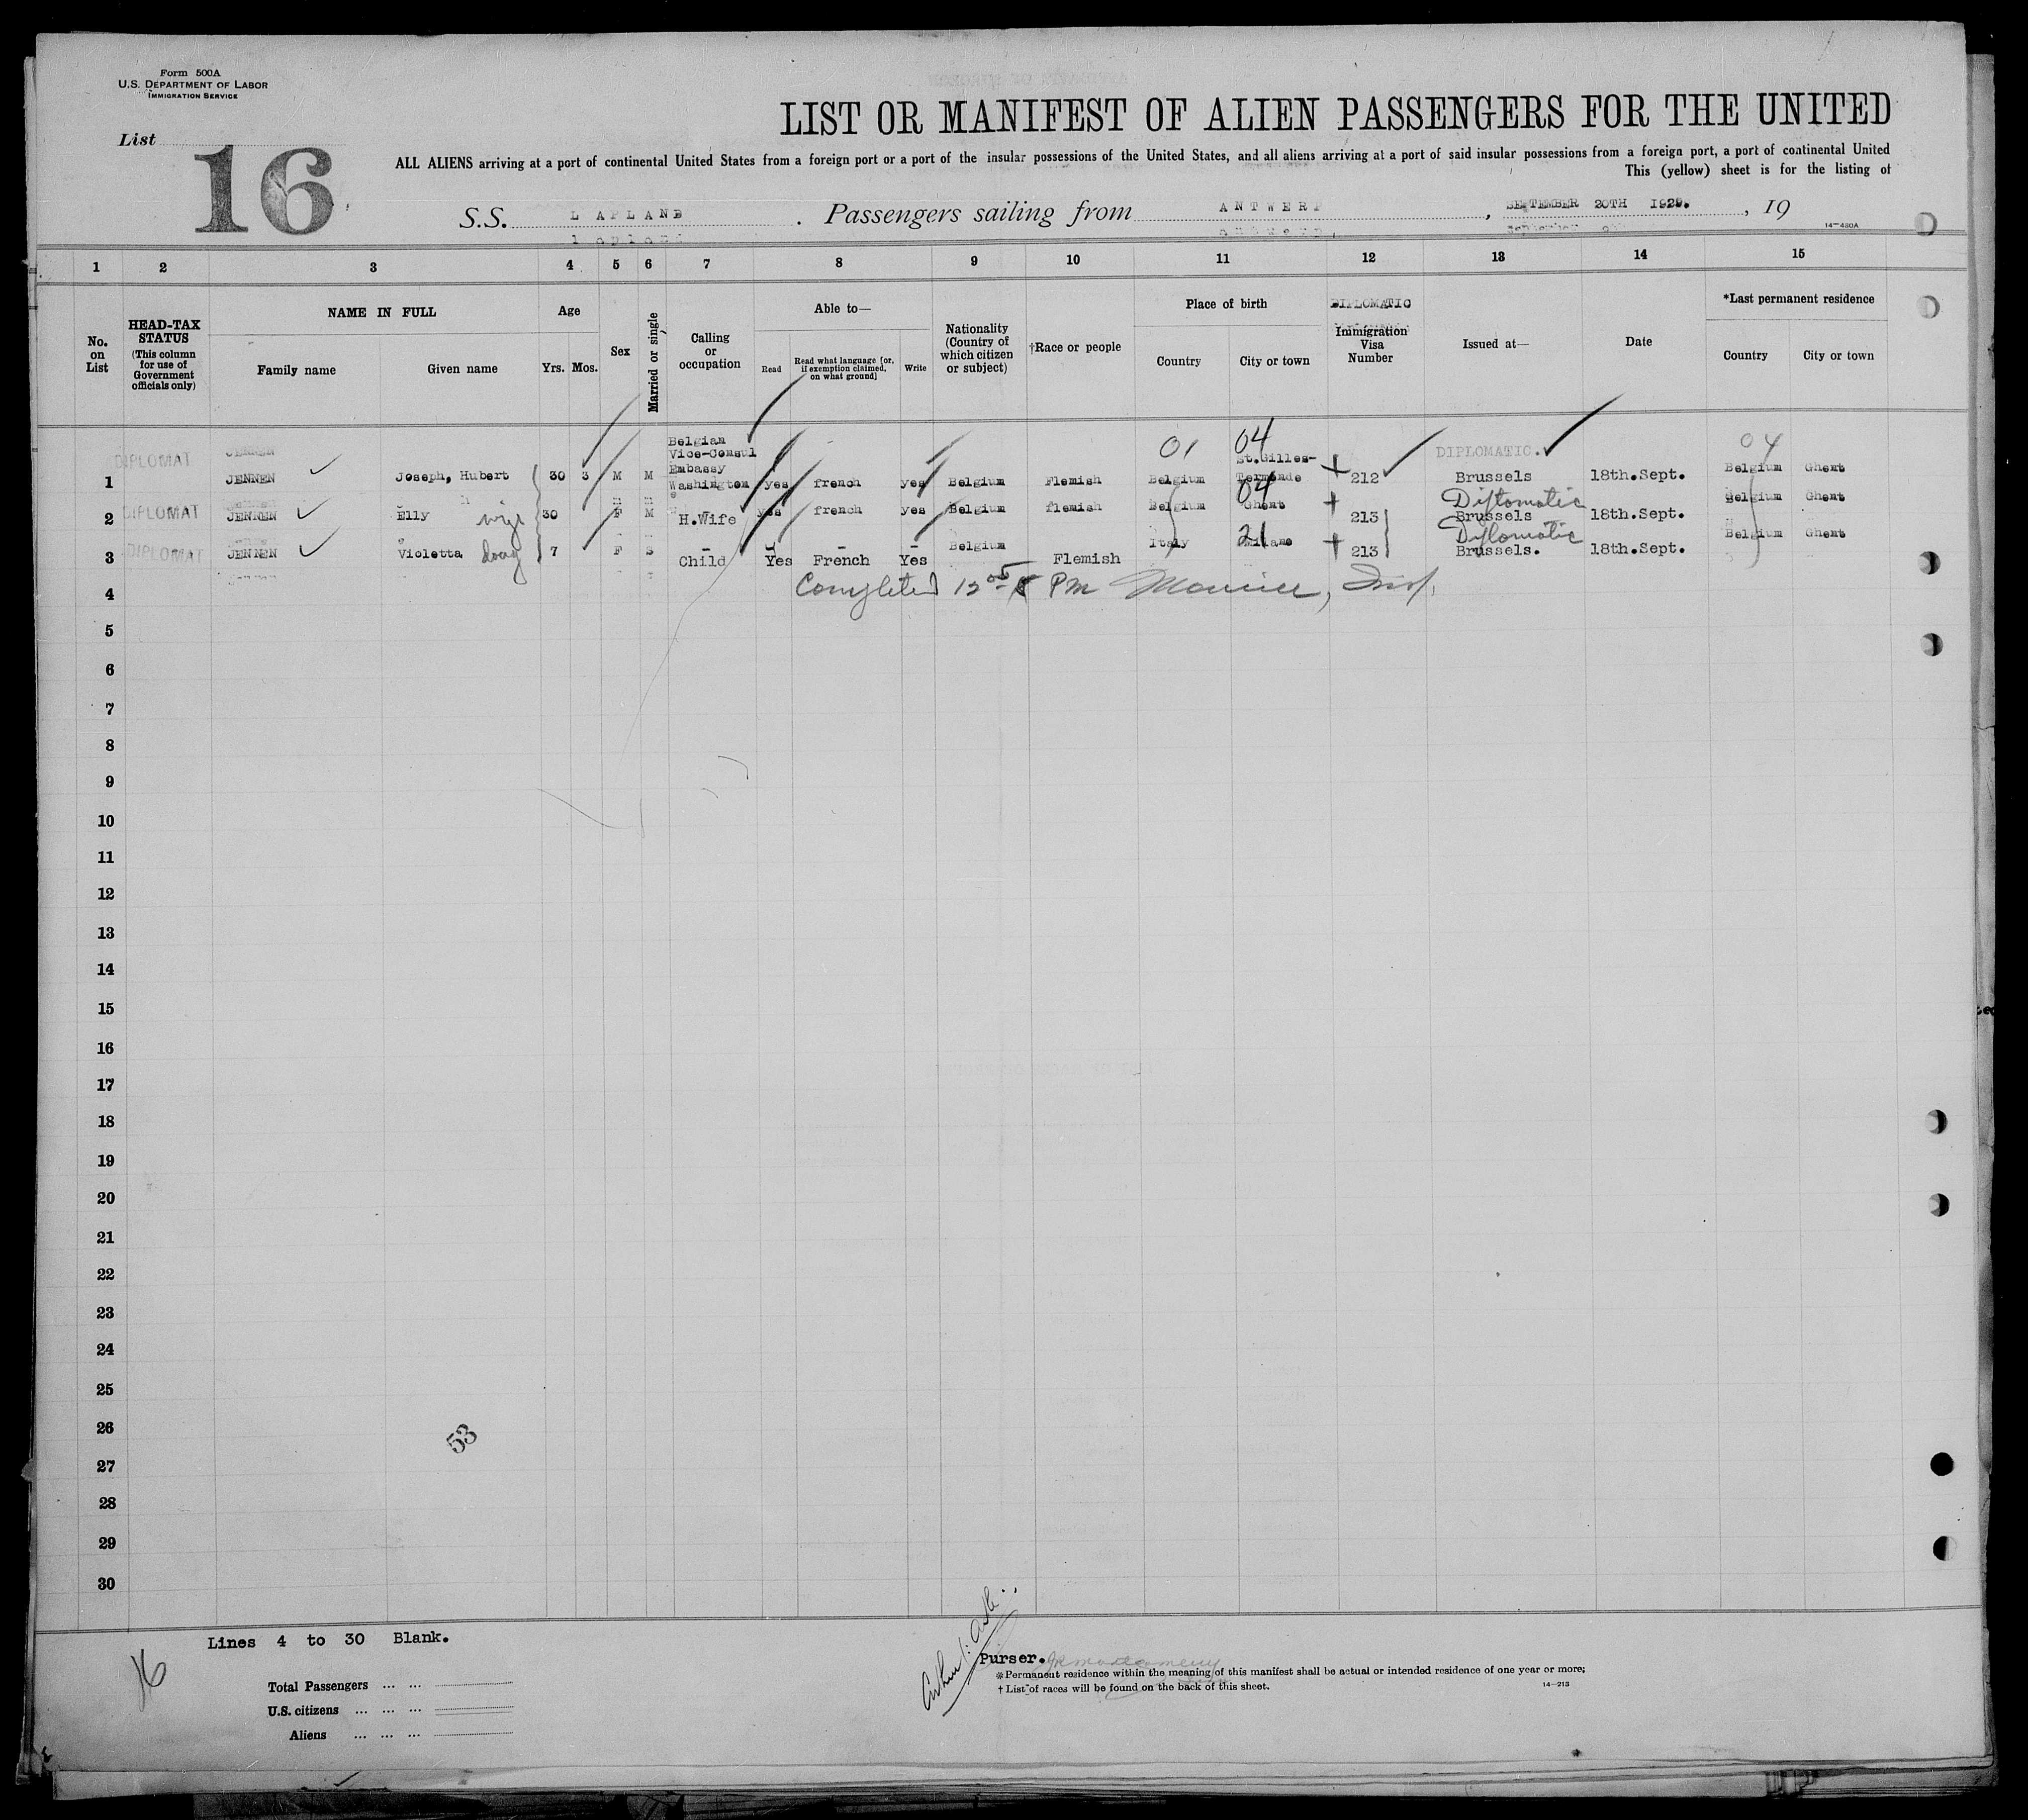 Form 500A
U.S. DEPARTMENT OF LABOR
IMMIGRATION SERVICE
List
16
LIST OR MANIFEST OF ALIEN PASSENGERS FOR THE UNITED
ALL ALIENS arriving at a port of continental United States from a foreign port or a port of the insular possessions of the United States, and all aliens arriving at a port of said insular possessions from a foreign port, a port of continental United
This (yellow) sheet is for the listing of
S.S. LAPLAND. Passengers sailing from ANTWERP, SEPTEMBER 20TH 1929., 19
14—430A
1 2 3 4 5 6 7 8 9 10 11 12 13 14 15
No. on List
HEAD-TAX STATUS
(This column for use of Government officials only)
NAME IN FULL
Family name Given name
Age
Yrs. Mos.
Sex
Married or single
Calling or occupation
Able to—
Read
Read what language [or, if exemption claimed, on what ground]
Write
Nationality (Country of which citizen or subject)
†Race or people
Place of birth
Country City or town
DIPLOMATIC
Immigration Visa Number
Issued at—
Date
*Last permanent residence
Country City or town
01 04 DIPLOMATIC. 04
1 DIPLOMAT JENNEN Joseph, Hubert 30 3 M M Belgian Vice-Consul Embassy Washington yes french yes Belgium Flemish Belgium St.Gilles-Termonde 212 Brussels 18th.Sept. Belgium Ghent
04 Diplomatic
2 DIPLOMAT JENNEN Elly wife 30 F M H.Wife yes french yes Belgium flemish Belgium Ghent 213 Brussels 18th.Sept. Belgium Ghent
21 Diplomatic
3 DIPLOMAT JENNEN Violetta daug 7 F S Child Yes French Yes Belgium Flemish Italy Milano 213 Brussels. 18th.Sept. Belgium Ghent
4 Completed 12 05 PM Insp.
5
6
7
8
9
10
11
12
13
14
15
16
17
18
19
20
21
22
23
24
25
26
53
27
28
29
30
Lines 4 to 30 Blank.
16
Purser.
Total Passengers ... ...
U.S. citizens ... ... ...
Aliens ... ... ...
* Permanent residence within the meaning of this manifest shall be actual or intended residence of one year or more.
† List of races will be found on the back of this sheet.
14—213